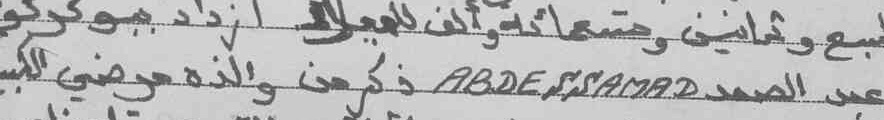 سبع وثمانين وتسعمائة وألف للميلاد ازداد ببوكركو
عبد الصمد ABDESSAMAD ذكر من والده مرضي الكبي